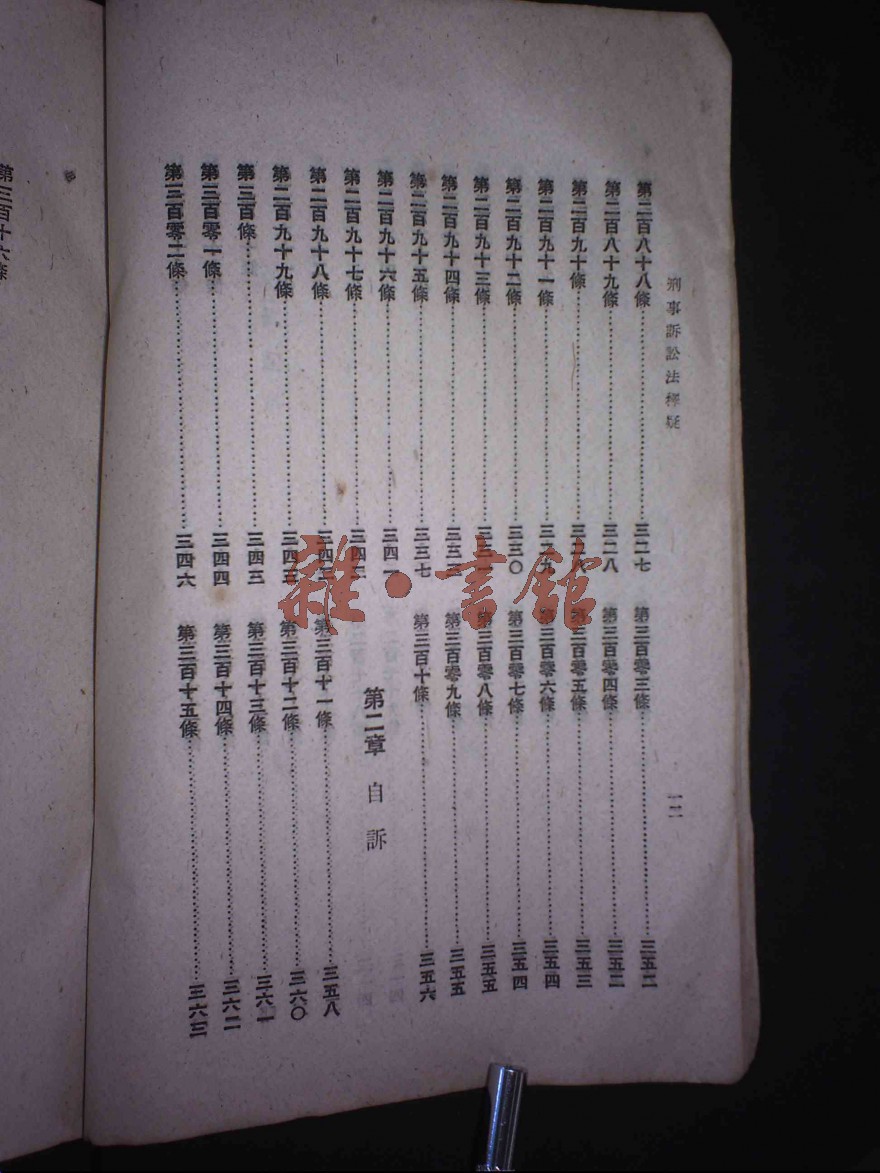 刑事訴訟法釋疑
一二
第二百八十八條……三二七
第二百八十九條……三二八
第二百九十條……三二八
第二百九十一條……三二九
第二百九十二條……三三〇
第二百九十三條……三三一
第二百九十四條……
第二百九十五條……三三七
第二百九十六條……三四一
第二百九十七條……
第二百九十八條……
第二百九十九條……三四三
第三百條……三四三
第三百零一條……三四四
第三百零二條……三四六
第三百零三條……三五二
第三百零四條……三五二
第三百零五條……三五三
第三百零六條……三五四
第三百零七條……三五四
第三百零八條……三五五
第三百零九條……三五五
第三百十條……三五六
第二章 自訴
第三百十一條……三五八
第三百十二條……三六〇
第三百十三條……三六一
第三百十四條……三六二
第三百十五條……三六三
第三百十六條
雜·書館